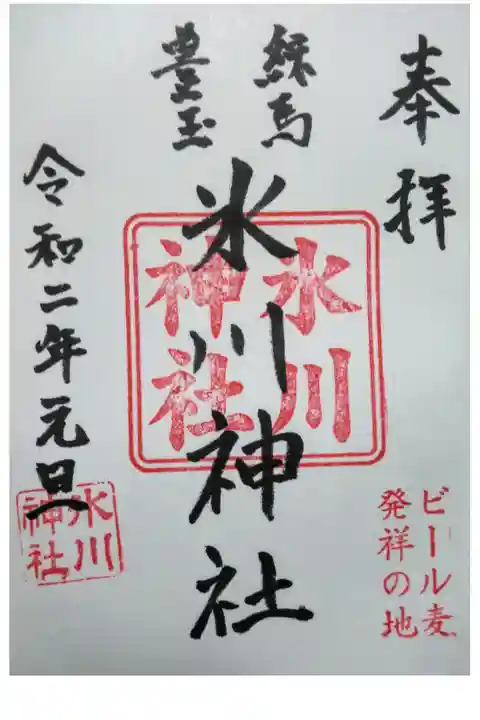 奉拝
練馬
豊玉
氷川神社
氷川
神社
ビール麦
発祥の地
令和二年元旦
氷川
神社